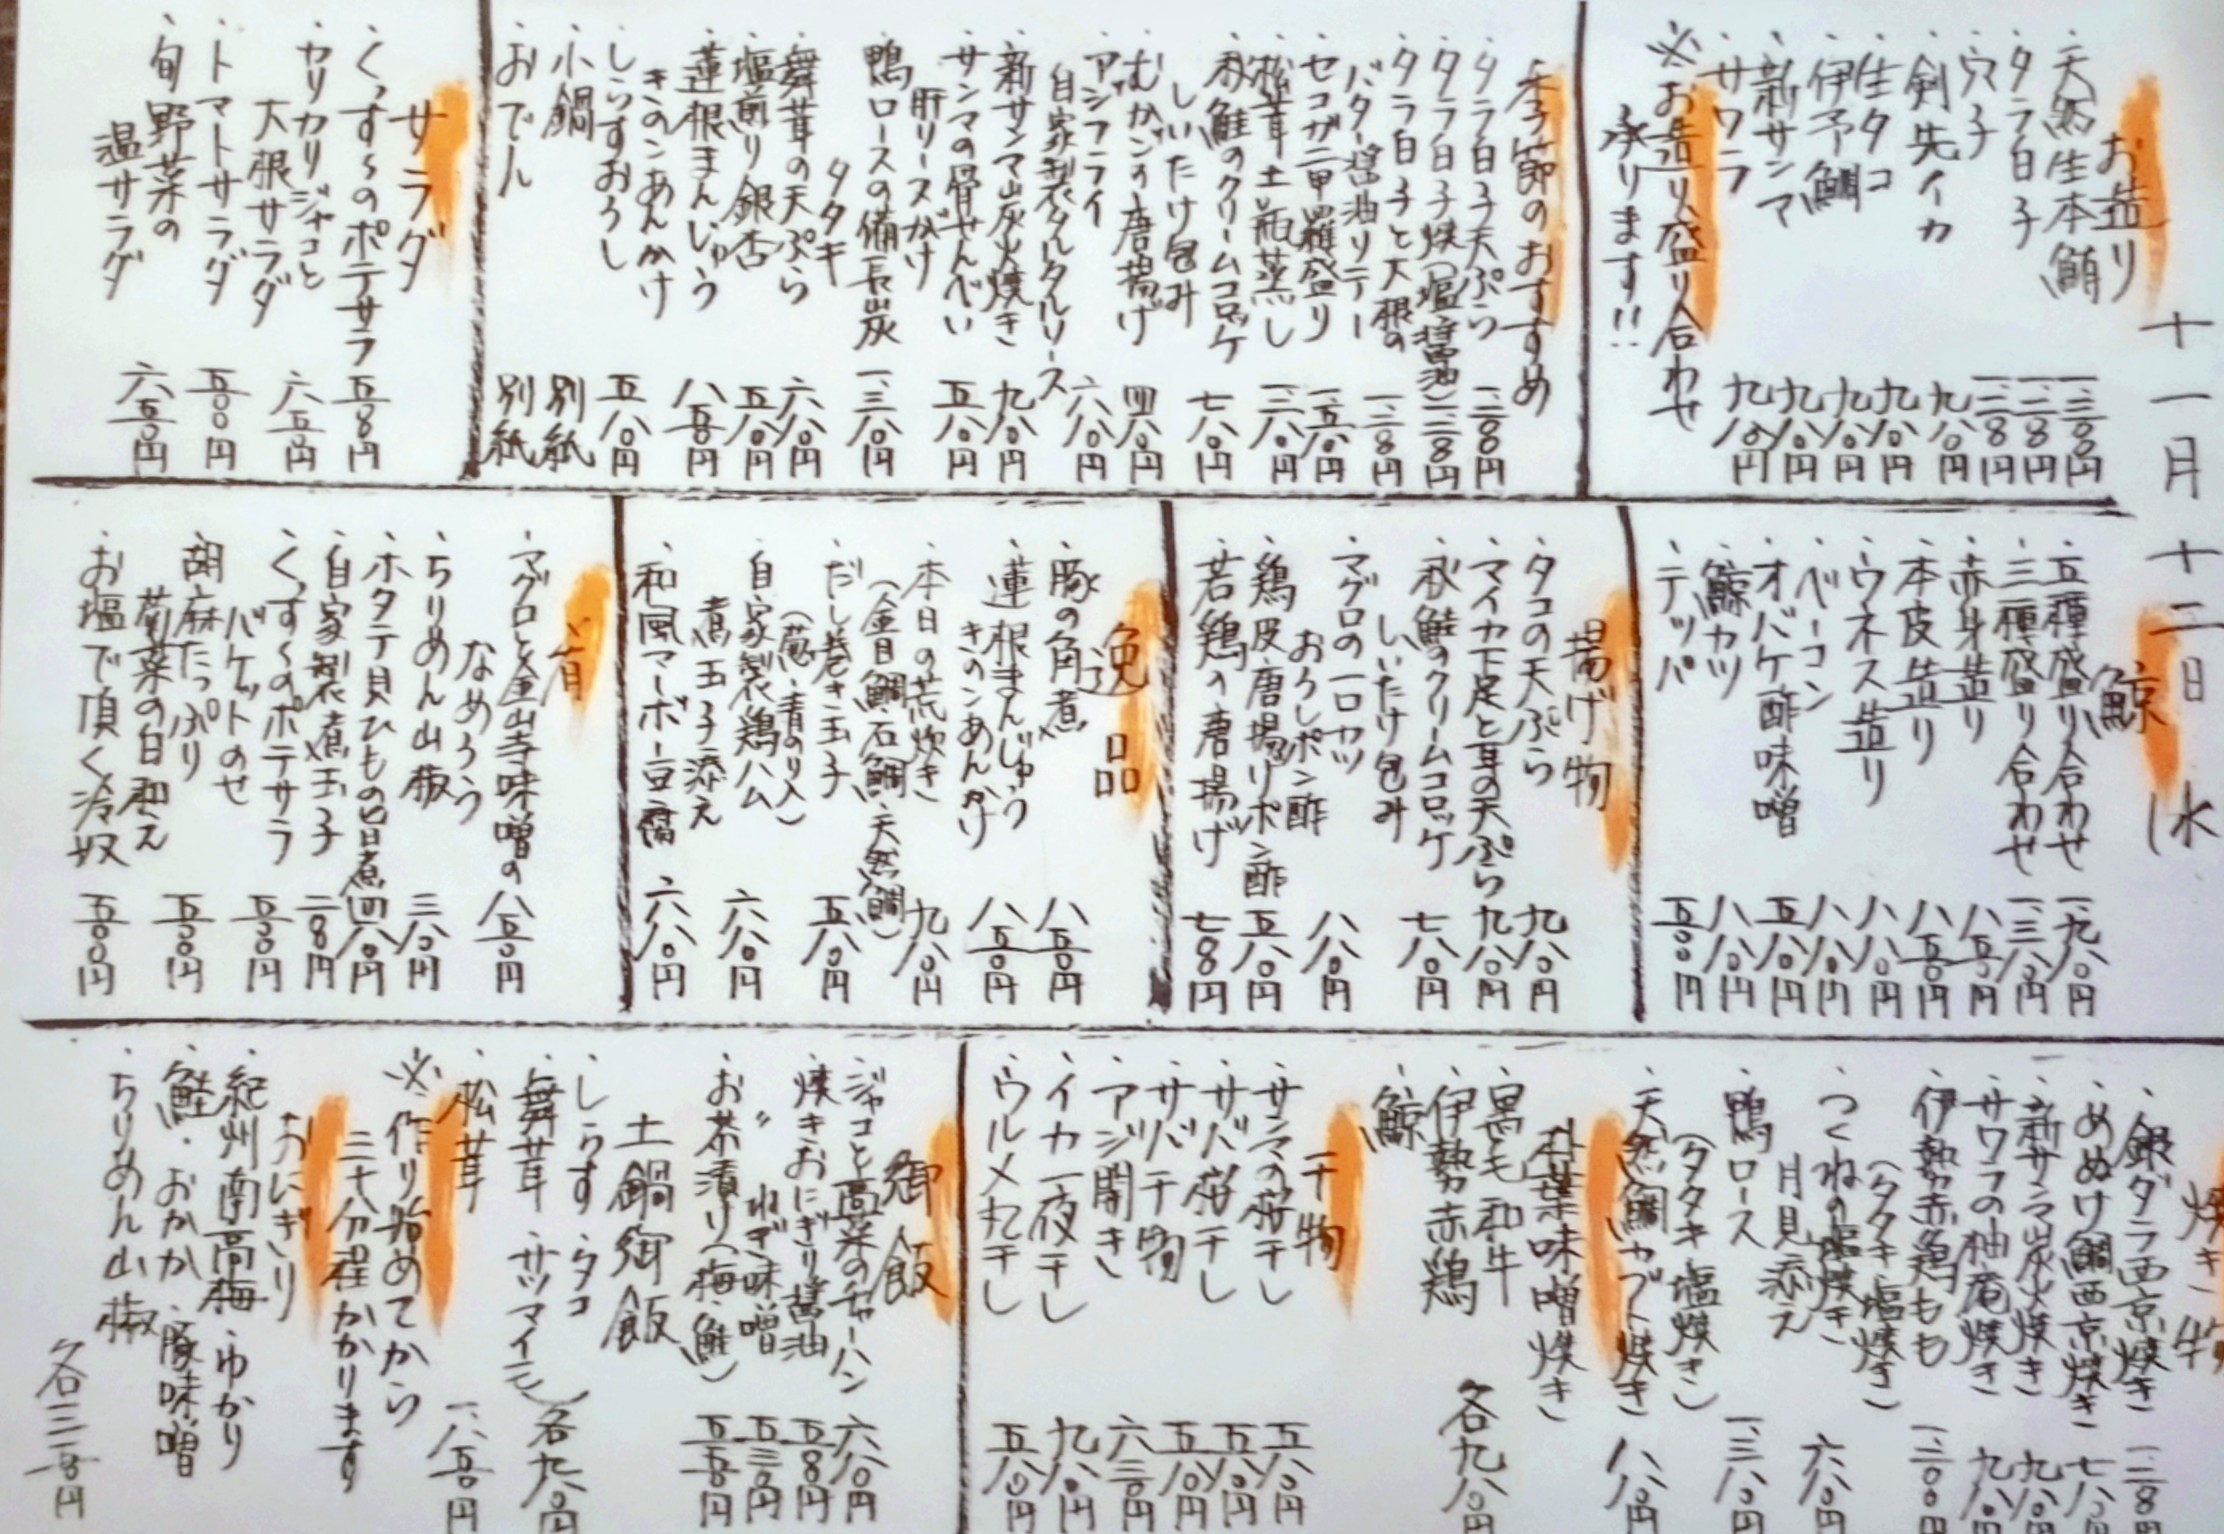 十一月十二日(水)
お造り
・天然生本鮪 一、三〇〇円
・タラ白子 一、二八〇円
・穴子 一、二八〇円
・剣先イカ 九八〇円
・生タコ 九八〇円
・伊予鯛 九八〇円
・新サンマ 九八〇円
・サワラ 九八〇円
※お造り盛り合わせ
承ります!!
季節のおすすめ
・タラ白子天ぷら 一、二〇〇円
・タラ白子焼(塩・醤油)一、二八〇円
・タラ白子と大根の
バター醤油ソテー 一、二八〇円
・セコガニ甲羅盛り 一、五八〇円
・松茸土瓶蒸し 一、三八〇円
・秋鮭のクリームコロッケ
しいたけ包み 七八〇円
・むかごの唐揚げ 四八〇円
・アジフライ
自家製タルタルソース 六八〇円
・新サンマ炭火焼き 九八〇円
・サンマの骨せんべい
肝ソースがけ 五八〇円
・鴨ロースの備長炭
タタキ 一、三八〇円
・舞茸の天ぷら 六八〇円
・塩煎り銀杏 五八〇円
・蓮根まんじゅう
きのこあんかけ 八五〇円
・しらすおろし 五八〇円
・小鍋 別紙
・おでん 別紙
サラダ
・くっすぅのポテサラ 五八〇円
・カリカリジャコと
大根サラダ 六五〇円
・トマトサラダ 五〇〇円
・旬野菜の
温サラダ 六五〇円
鯨
・五種盛り合わせ 一、九八〇円
・三種盛り合わせ 一、三八〇円
・赤身造り 八五〇円
・本皮造り 八五〇円
・ウネス造り 八八〇円
・ベーコン 八八〇円
・オバケ酢味噌 五八〇円
・鯨カツ 八八〇円
・テッパ 五〇〇円
揚げ物
・タコの天ぷら 九八〇円
・マイカ下足と耳の天ぷら 九八〇円
・秋鮭のクリームコロッケ
しいたけ包み 七八〇円
・マグロの一口カツ
おろしポン酢 八八〇円
・鶏皮唐揚げポン酢 五八〇円
・若鶏の唐揚げ 七八〇円
逸品
・豚の角煮 八五〇円
・蓮根まんじゅう
きのこあんかけ 八五〇円
・本日の荒炊き 九八〇円
(金目鯛・石鯛・天然鯛)
・だし巻き玉子 五八〇円
(葱・青のり入)
・自家製鶏ハム
煮玉子添え 六八〇円
・和風マーボー豆腐 六八〇円
肴
・マグロと金山寺味噌の
なめろう 八五〇円
・ちりめん山椒 三八〇円
・ホタテ貝ひもの旨煮 四八〇円
・自家製煮玉子 二八〇円
・くっすぅのポテサラ
バケットのせ 五〇〇円
・胡麻たっぷり
菊菜の白和え 五〇〇円
・お塩で頂く冷奴 五〇〇円
焼き物
・銀ダラ西京焼き 一、二八〇円
・めぬけ鯛西京焼き 七八〇円
・新サンマ炭火焼き 九八〇円
・サワラの柚庵焼き 九八〇円
・伊勢赤鶏もも 一、二〇〇円
(タタキ・塩焼き)
・つくねの塩焼き
月見添え 六八〇円
・鴨ロース 一、三八〇円
(タタキ・塩焼き)
・天然鯛カブト焼き 八八〇円
朴葉味噌焼き
・黒毛和牛
・伊勢赤鶏
・鯨
各九八〇円
干物
・サンマの桜干し 五八〇円
・サバ桜干し 五八〇円
・サバ干物 五八〇円
・アジ開き 六三〇円
・イカ一夜干し 九八〇円
・ウルメ丸干し 五八〇円
御飯
・ジャコと高菜のチャーハン 六八〇円
・焼きおにぎり醤油 五〇〇円
・〃 ねぎ味噌 五三〇円
・お茶漬け(梅・鮭) 五五〇円
土鍋御飯
・しらす・タコ
・舞茸・サツマイモ 各九八〇円
・松茸 一、八五〇円
※作り始めてから
三十分程かかります
おにぎり
・紀州南高梅・ゆかり
・鮭・おかか・豚味噌
・ちりめん山椒
各三二〇円